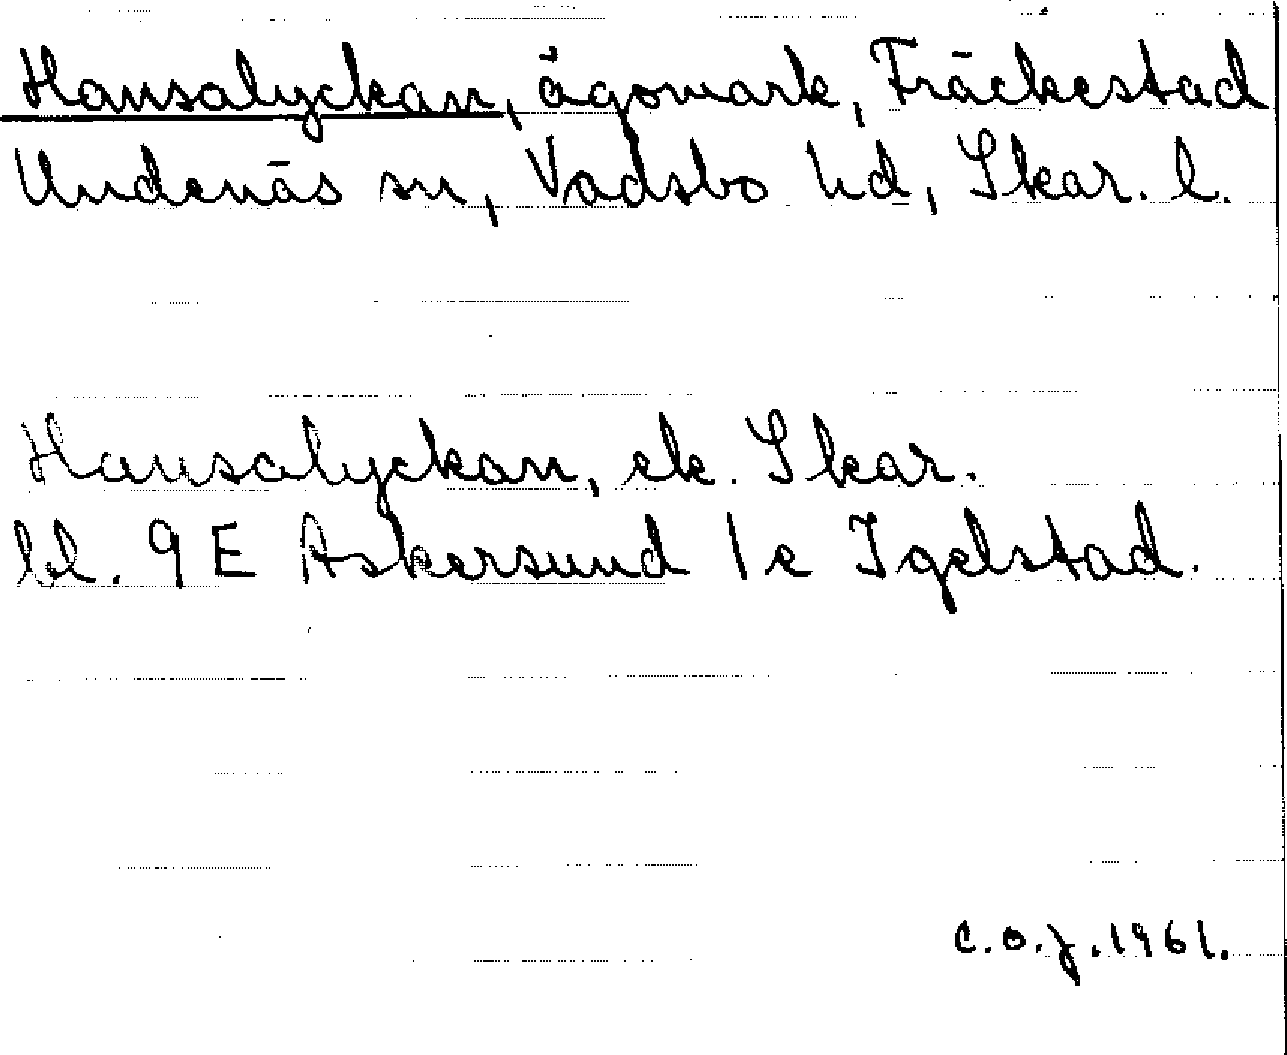 Hansalyckan, ägomark, Fräckestad
Undenäs sn, Vadsbo hd, Skar. l.
Hansalyckan, ek. Skar.
bl. 9 E Askersund 1e Igelstad.
C.O.J. 1961.